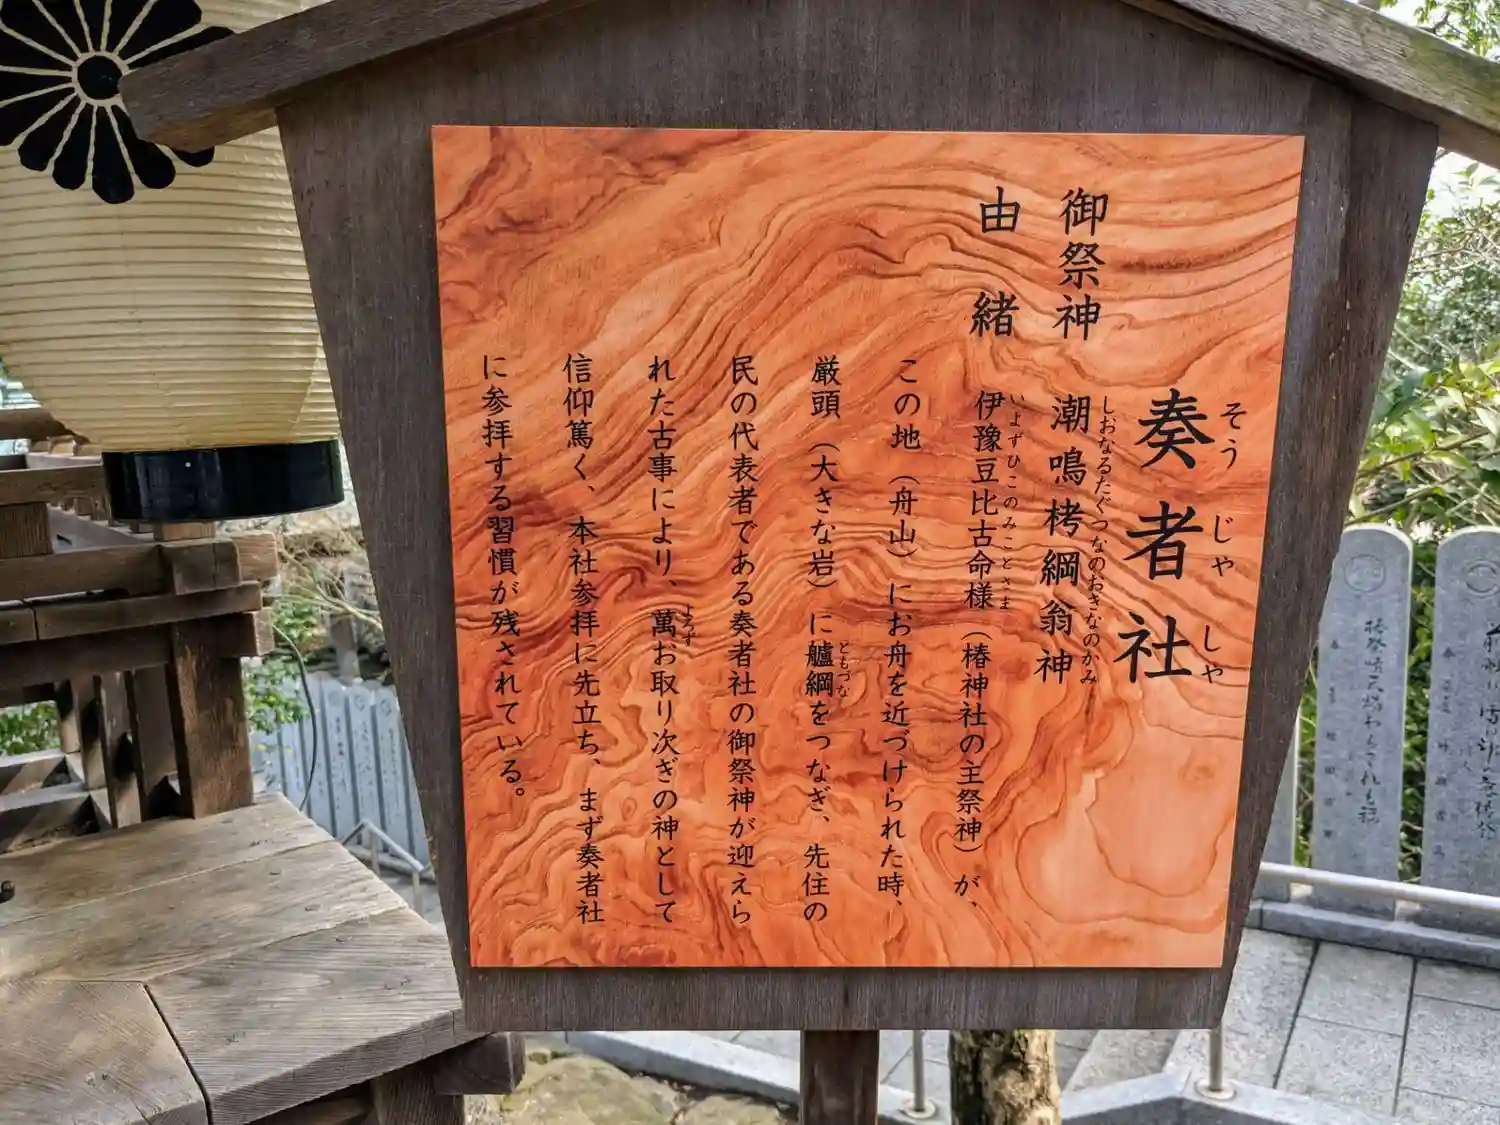 奏者社
そうじゃしゃ
御祭神
潮鳴栲綱翁神
しおなるたぐつなのおきなのかみ
由緒
伊豫豆比古命様（椿神社の主祭神）が、
いよずひこのみことさま
この地（舟山）にお舟を近づけられた時、
厳頭（大きな岩）に艫綱をつなぎ、先住の
ともづな
民の代表者である奏者社の御祭神が迎えら
れた古事により、萬お取り次ぎの神として
よろず
信仰篤く、本社参拝に先立ち、まず奏者社
に参拝する習慣が残されている。